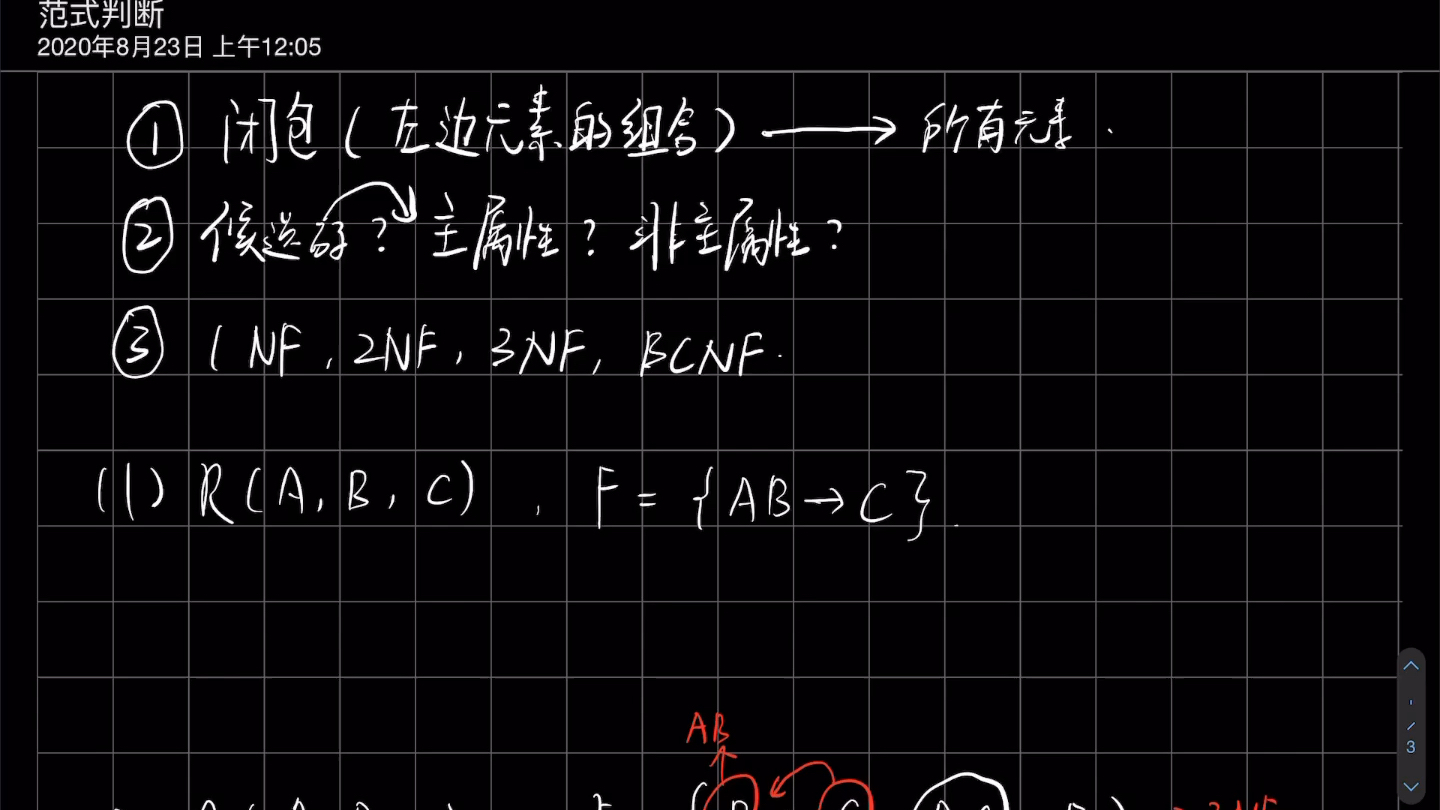 范式判断
2020年8月23日 上午12:05
① 闭包(左边元素的组合) → 所有元素.
② 候选码? 主属性? 非主属性?
③ 1NF, 2NF, 3NF, BCNF.
(1) R(A, B, C) , F = {AB→C}.
AB
3